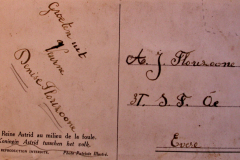 Groeten uit
Veurne
Denise Flourcoone
A. J. Flourcoone
T. S. F.
Evere
Reine Astrid au milieu de la foule.
Koningin Astrid tusschen het volk.
REPRODUCTION INTERDITE.